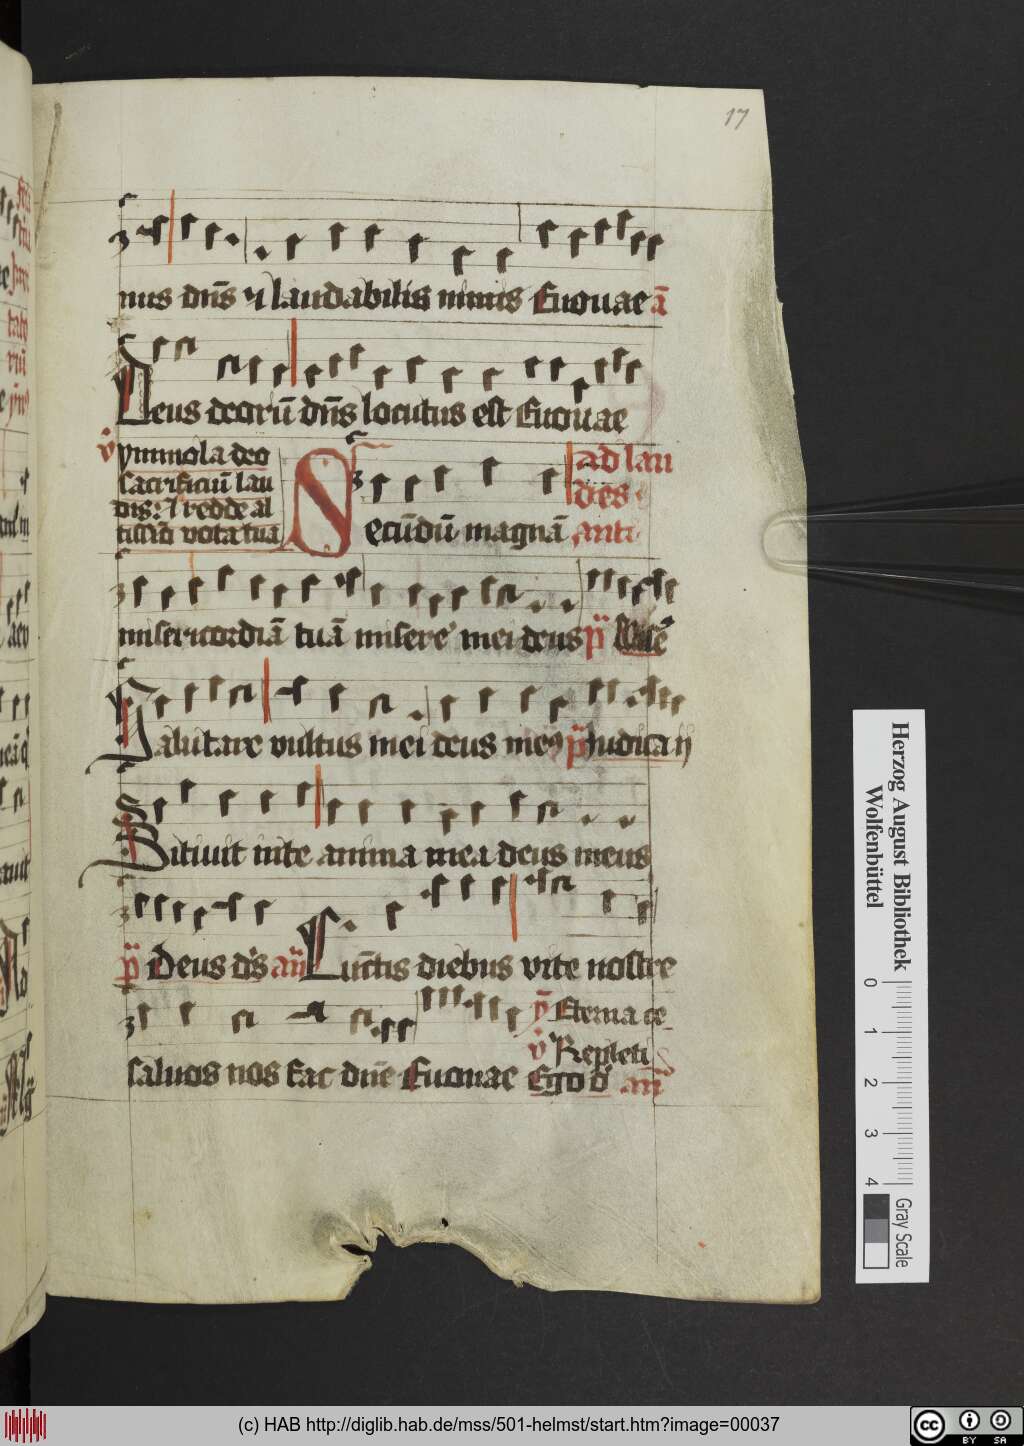 17
nus dn̄s ⁊ laudabilis nimis Euouae ā
Deus deorū dn̄s locutus est Euouae
v̊ ymmola deo
sacrificiū lau
dis: ⁊ redde al
tissīō vota tua
ad lau
des
Secūdū magnā anti
misericordiā tuā misere mei deus p̄
Salutare vultus mei deus meꝰ p̄ Iudica ij
Sitiuit inte anima mea deus meus
p̄ Deus ds̄ an̄ Cunc̄tis diebus vite nostre
ꝟ Eterna ce
v̊ Repleti
saluos nos fac dn̄e Euouae Ego d̄ an̄
Herzog August Bibliothek
Wolfenbüttel
0 1 2 3 4
Gray Scale
(c) HAB http://diglib.hab.de/mss/501-helmst/start.htm?image=00037
cc BY SA